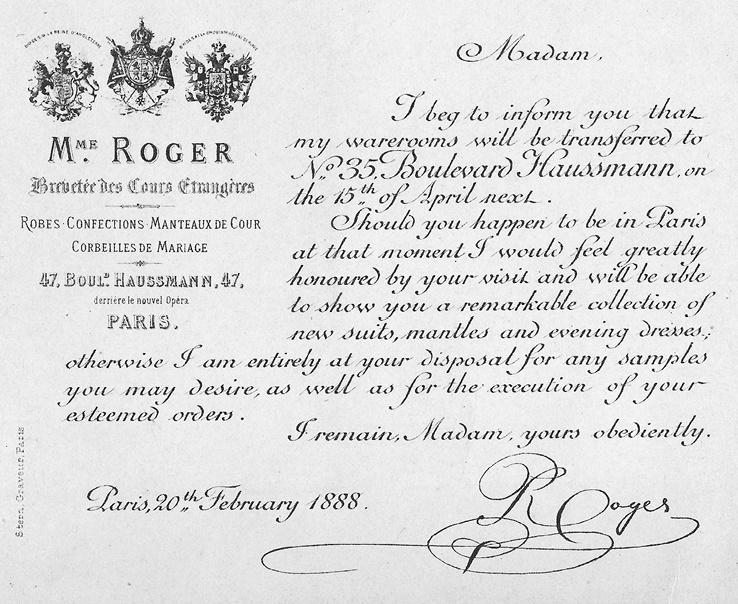 BREVETÉE DE S.M. LA REINE D'ANGLETERRE
MME. ROGER
Brevetée des Cours Etrangères
ROBES · CONFECTIONS · MANTEAUX DE COUR
CORBEILLES DE MARIAGE
47, BOULD. HAUSSMANN, 47,
derrière le nouvel Opéra
PARIS.
Madam,
I beg to inform you that
my warerooms will be transferred to
No. 35. Boulevard Haussmann, on
the 15th of April next.
Should you happen to be in Paris
at that moment I would feel greatly
honoured by your visit and will be able
to show you a remarkable collection of
new suits, mantles and evening dresses;
otherwise I am entirely at your disposal for any samples
you may desire, as well as for the execution of your
esteemed orders.
I remain, Madam, yours obediently.
Paris, 20th February 1888.
R Roger
Stern, Graveur, Paris